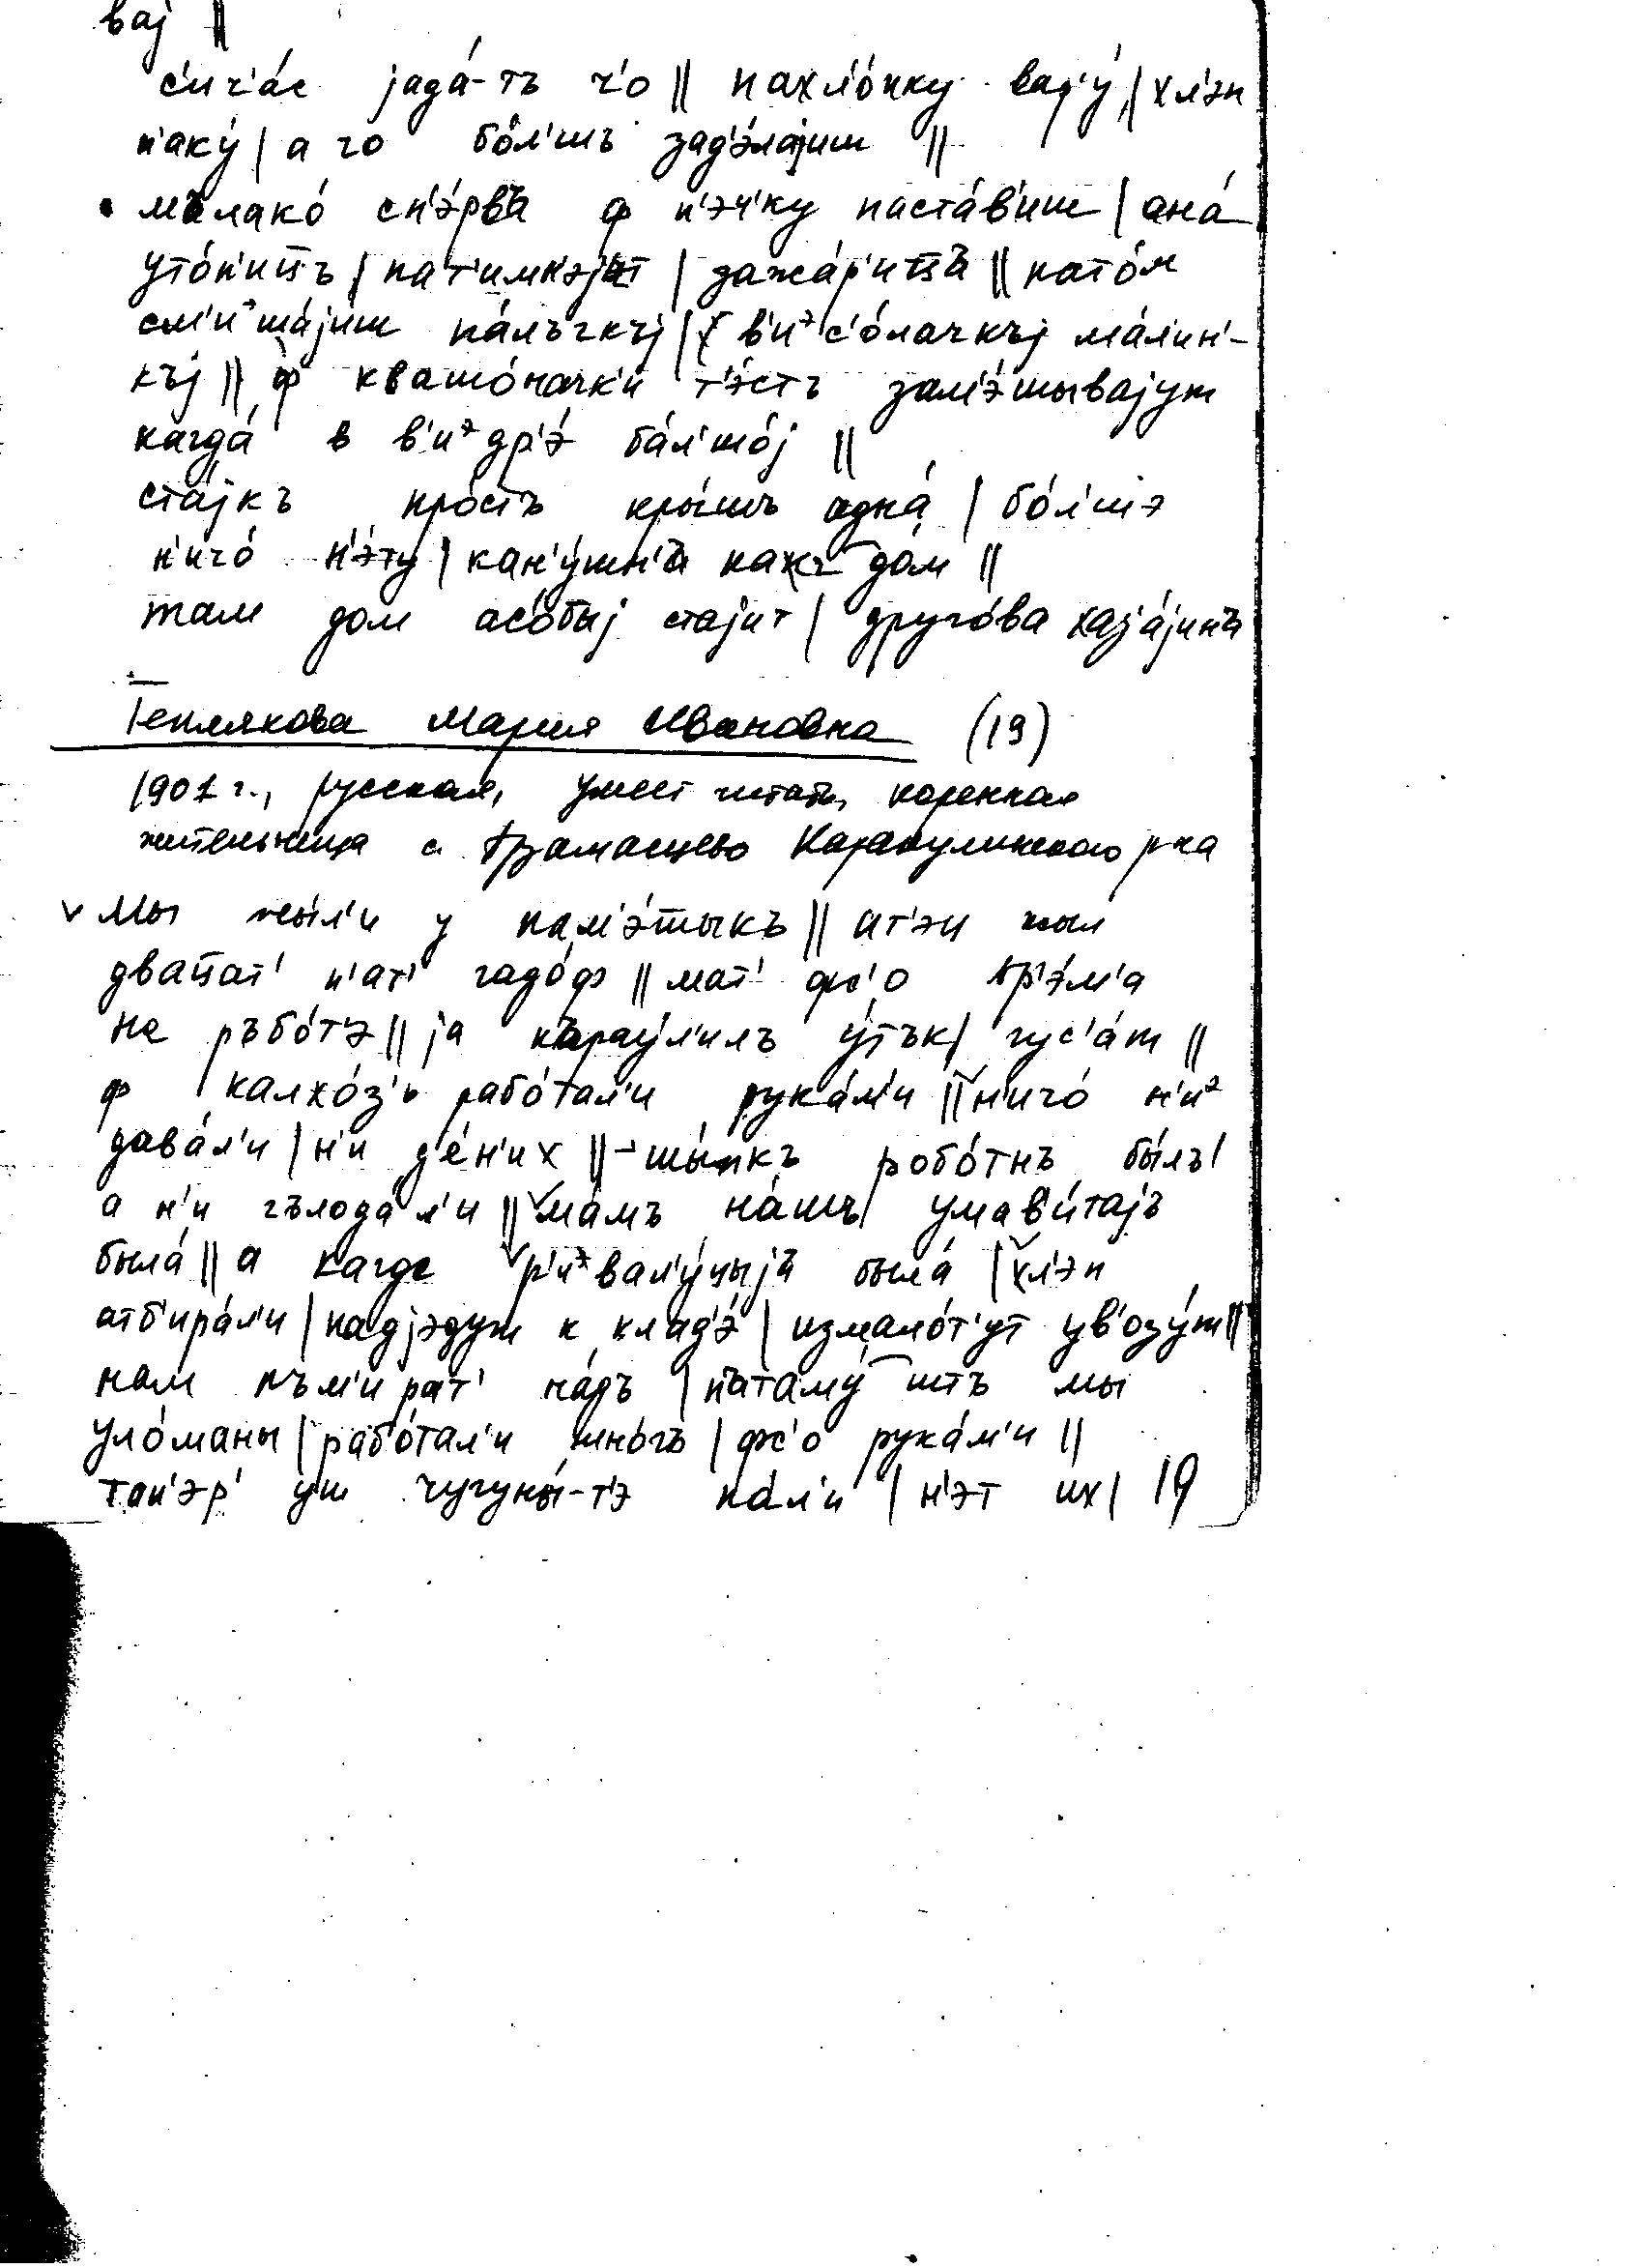 вај ||
с'ич'а́с јада́-тъ ч'о || пахл'о́пку вар'у́ | хл'эп
п'аку́ | а чо бо́л'шъ зад'э́лајиш ||
мълако́ сп'э́рвъ ф п'эч'ку паста́в'иш | ана́
уто́п'иц̄ъ | зажа́р'иц̄ъ || пато́м
см'иᵊша́јиш па́лъчкъј | в'иᵊс'о́лачкъј ма́л'ин'-
къј || ф квашо́начк'и т'э́стъ зам'э́шывајут
када́ в в'иᵊдр'э́ бал'шо́ј ||
ста́јкъ про́стъ кры́шъ адна́ | бо́л'шэ
н'ичо́ н'э́ту | кан'у́шн'ъ какъ дом ||
там дом асо́быј стаји́т | друго́ва хаз'а́јинъ
Теплякова Мария Ивановна (19)
1901 г., русская, умеет читать, коренная
жительница с. Арзамасцево Каракулинского р-на
Мы жы́л'и у пам'э́тыкъ || ат'эц жыл
двац̄ат' п'ат' гадо́ф || мат' фс'о вр'э́м'а
на ръбо́т'э || ја кърау́л'илъ у́тък | гус'а́т ||
ф калхо́з'ь рабо́тал'и рука́м'и || н'ичо́ н'иᵊ
дава́л'и | н'и д'е́н'их || шы́пкъ робо́тнъ бы́лъ |
а н'и гълода́л'и || ма́мъ на́шъ умав'и́таја
была́ || а кагда р'иᵊвал'у́цыјъ была́ | хл'эп
атб'ира́л'и | падјэдут к клад'э́ | измало́т'ут ув'озу́т ||
нам пъм'ират' на́дъ | пътаму́ штъ мы
уло́маны | рабо́тал'и мно́гъ | фс'о рука́м'и ||
тап'эр' уш чугуны́-т'э па́л'и | н'эт их | 19